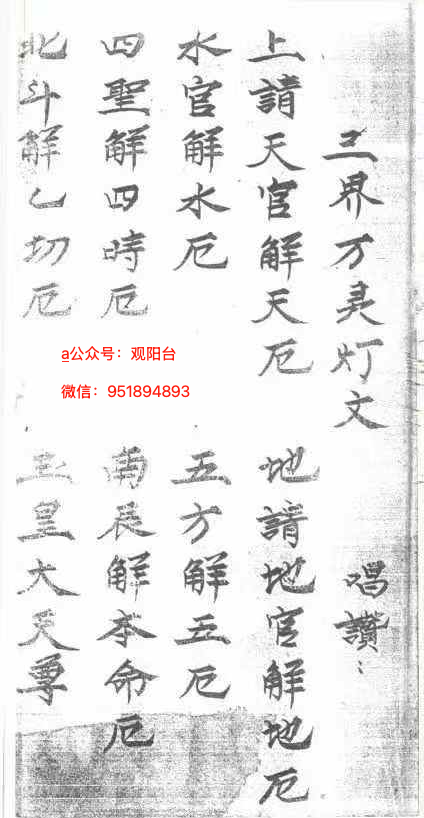 三界万灵灯文 唱讚：
上請天官解天厄 地請地官解地厄
水官解水厄 五方解五厄
四聖解四時厄 南辰解本命厄
北斗解乙切厄 玉皇大天尊
a公众号：观阳台
微信：951894893